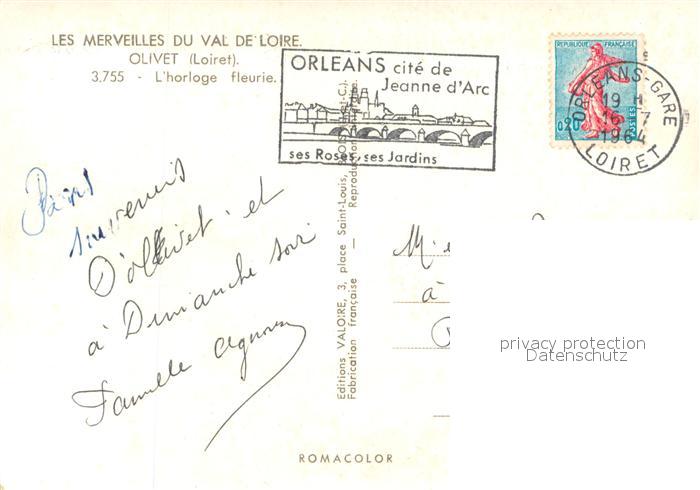 LES MERVEILLES DU VAL DE LOIRE.
OLIVET (Loiret).
3.755 - L'horloge fleurie.
ORLEANS cité de
Jeanne d'Arc
ses Roses, ses Jardins
REPUBLIQUE FRANÇAISE
0,20
POSTES
ORLEANS-GARE
19 H
16-7
1964
LOIRET
souvenirs
D'olivet. et
à Dimanche soir
Famille
Editions VALOIRE, 3, place Saint-Louis,
Fabrication française —
M
à
privacy protection
Datenschutz
ROMACOLOR